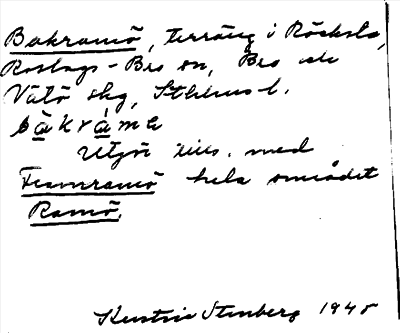 Bakramö, terräng i Röcksta,
Roslags-Bro sn, Bro och
Vätö skg, Sthlms l.
bàkràmé
Utgör tills. med
Framramö hela området
Ramö.
Kerstin Stenberg 1945